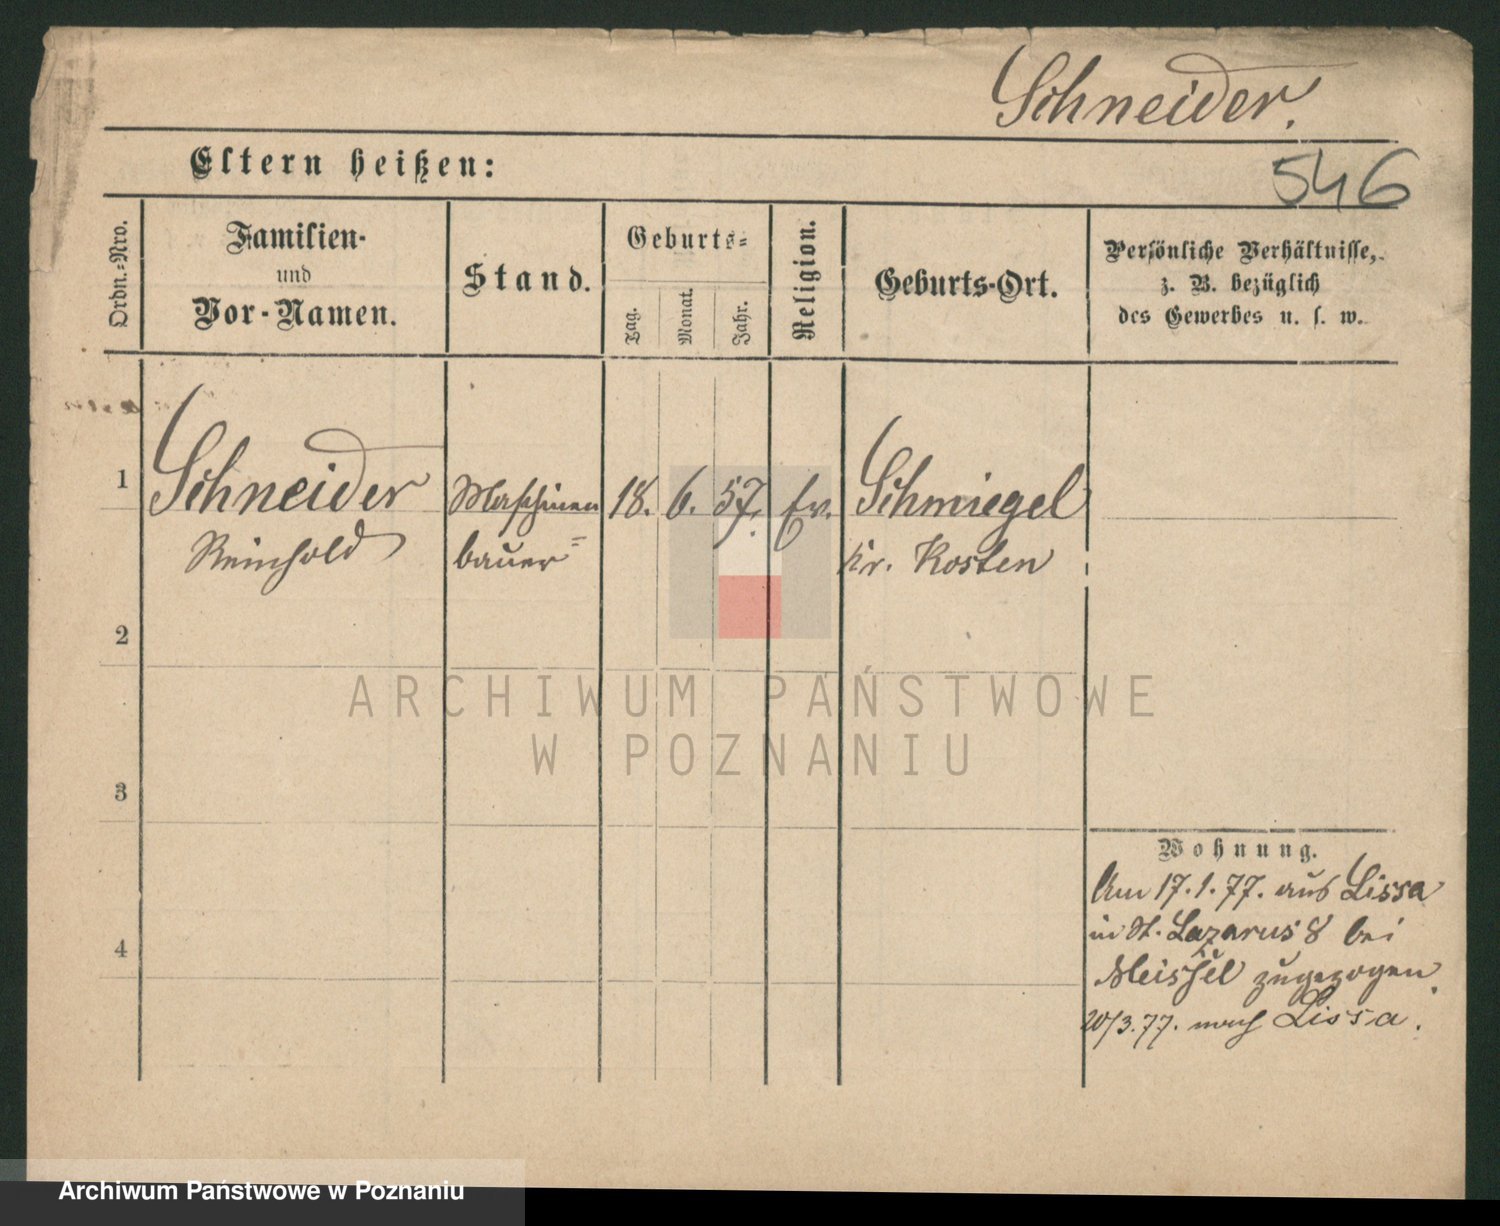 Schneider.
Eltern heißen:
546
Ordn.=Nro.
Familien-
und
Vor-Namen.
Stand.
Geburts=
Tag.
Monat.
Jahr.
Religion.
Geburts-Ort.
Persönliche Verhältnisse,
z. B. bezüglich
des Gewerbes u. s. w.
1
Schneider
Reinhold
Maschinen
bauer=
18. 6. 57.
Ev.
Schmiegel
Kr. Kosten
2
3
4
Wohnung.
Am 17.1.77. aus Lissa
in St. Lazarus 8 bei
Meissel zugezogen.
20/3.77. nach Lissa.
ARCHIWUM PAŃSTWOWE
W POZNANIU
Archiwum Państwowe w Poznaniu